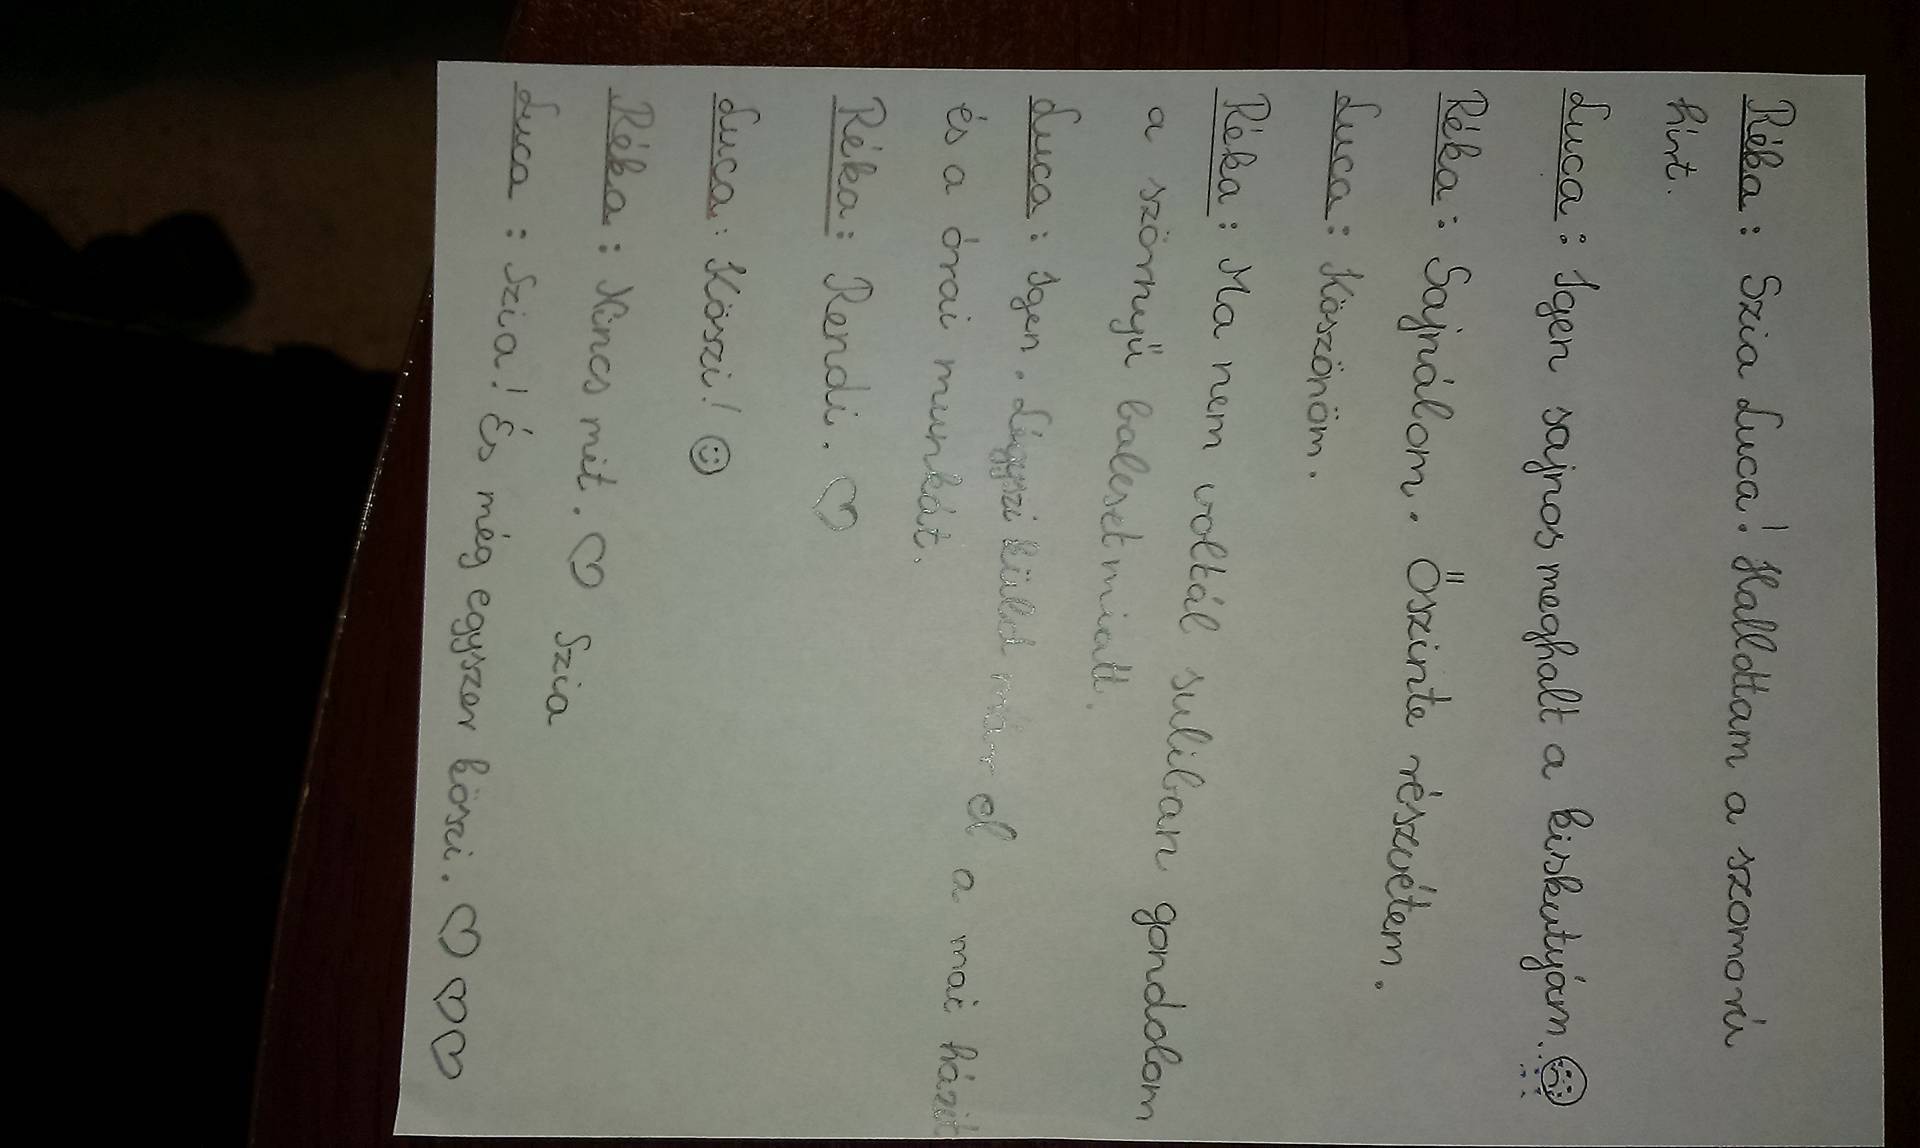 Réka: Szia Luca! Hallottam a szomorú
hírt.
Luca: Igen sajnos meghalt a kiskutyám.
Réka: Sajnálom. Őszinte részvétem.
Luca: Köszönöm.
Réka: Ma nem voltál suliban gondolom
a szörnyű baleset miatt.
Luca: Igen. Légyszi küld már el a mai házit
és a órai munkát.
Réka: Rendi. ♡
Luca: Köszi! ☺
Réka: Nincs mit. ♡ Szia
Luca: Szia! És még egyszer köszi. ♡♡♡